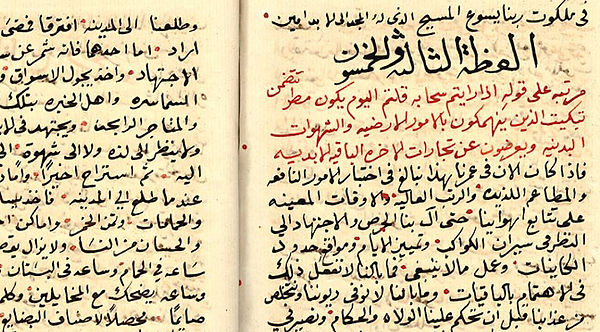 في ملكوت ربنا يسوع المسيح الذي له المجد الى الابد امين
العظة الثالثة والخمسون
مرتبه على قوله اذا رايتم سحابه قلتم اليوم يكون مطر تتضمن
تبكيت الذين ينهمكون بالامور الارضيه والشهوات
البدنيه ويعرضون عن تجارات الاخره الباقيه الابديه
فاذا كان الان في عزنا بهذا نبالغ في اختيار الامور النافعه
والمطاعم اللذيذه والرتب العاليه والاوقات المعينه
على نتايج اهوآينا حتى ال بنا الحرص والاجتهاد الى
النظر في سيران الكواكب وتمييز الايام ومواقع حدود
الكاينات وعمل مالا ينبغي فما بالنا لا نفعل ذلك
في الاهتمام بالباقيات وما بالنا لا نوفي ديوننا ونتخلص
من قبل ان تحكم علينا الولاه والحكام ونصير في
وطلعنا الى المدينه افترقا فمضى
اراد اما احدهما فانه شمر عن
الاجتهاد واخذ يجول الاسواق
السماسره واهل الخبره بتلك
والمتاجر الرابحه ويجتهد في
ولا ينظر الى لذه ولا الى شهوة
اليه ثم استراح اخيرًا
عندما طلع الى المدينه فاخذ
والحلهات وثمن الخمر واماكن
والحسان من النسآء ولا يزال
ساعه في الحمام وساعه في البستان
وساعه يضحك مع المخايلين وكلما
صايمًا يحصل الاصناف البضايع